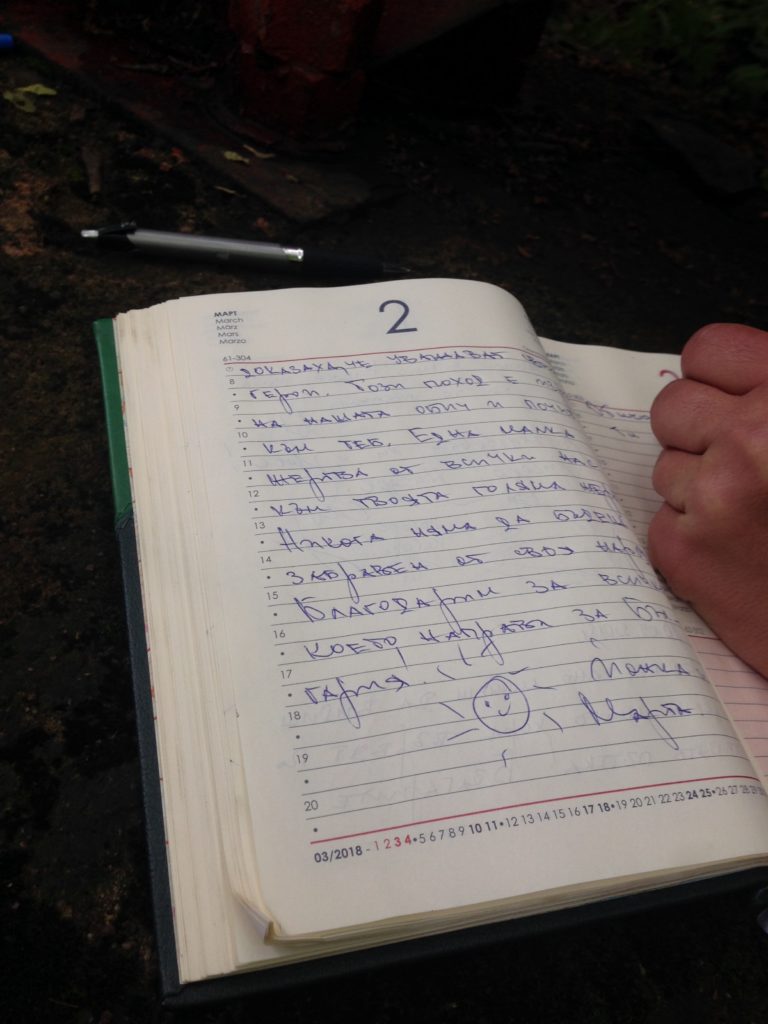 МАРТ
March
März
Mars
Marzo
2
61-304
доказаха, че уважават
8
герои. Този поход е
9
на нашата обич и
10
към теб. Една малка
11
жертва от всички нас
12
към твоята голяма
13
Никога няма да бъдеш
14
забравен от своя
15
Благодарим за
16
което направи за
17
гария.
18
Монка
Марта
19
20
03/2018 - 1 2 3 4 • 5 6 7 8 9 10 11 • 12 13 14 15 16 17 18 • 19 20 21 22 23 24 25 • 26 27 28 29